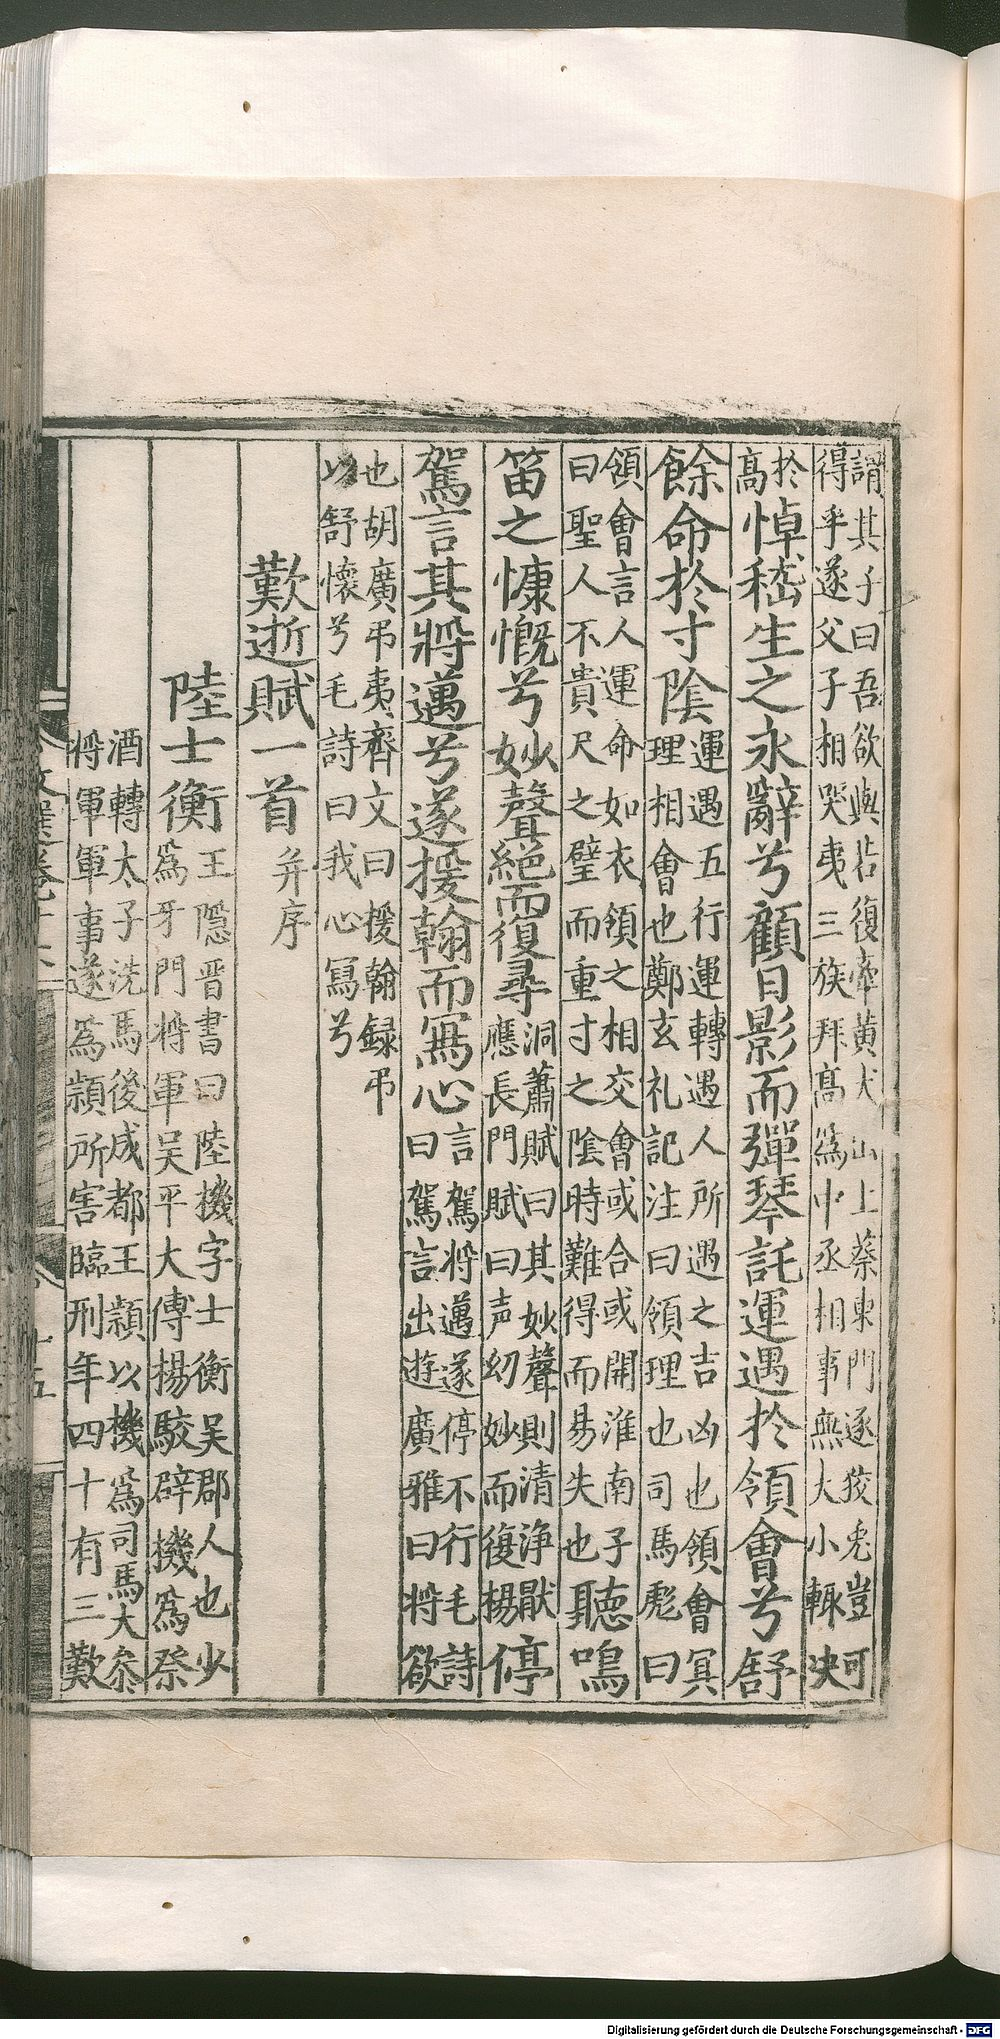 謂其子曰吾欲與若復牽黃犬出上蔡東門逐狡兎豈可
得乎遂父子相哭夷三族拜高爲中丞相事無大小輙决
於
高
悼嵇生之永辭兮顧日影而彈琴託運遇於領會兮舒
餘命於寸隂
運遇五行運轉遇人所遇之吉凶也領會冥
理相會也鄭玄礼記注曰領理也司馬彪曰
領會言人運命如衣領之相交會或合或開淮南子
曰聖人不貴尺之璧而重寸之隂時難得而昜失也
聽鳴
笛之慷慨兮妙聲絕而復尋
洞蕭賦曰其妙聲則清浄猒
應長門賦曰声幼妙而復揚
停
駕言其將邁兮遂援翰而寫心
言駕將邁遂停不行毛詩
曰駕言出遊廣雅曰將欲
也胡廣弔夷齊文曰援翰録弔
以舒懷兮毛詩曰我心寫兮
歎逝賦一首
并序
陸士衡
王隱晋書曰陸機字士衡吴郡人也少
爲牙門將軍吴平大傅揚駿辟機爲祭
酒轉太子洗馬後成都王頴以機爲司馬大叅
將軍軍事遂爲頴所害臨刑年四十有三
歎
十五
Digitalisierung gefördert durch die Deutsche Forschungsgemeinschaft - DFG